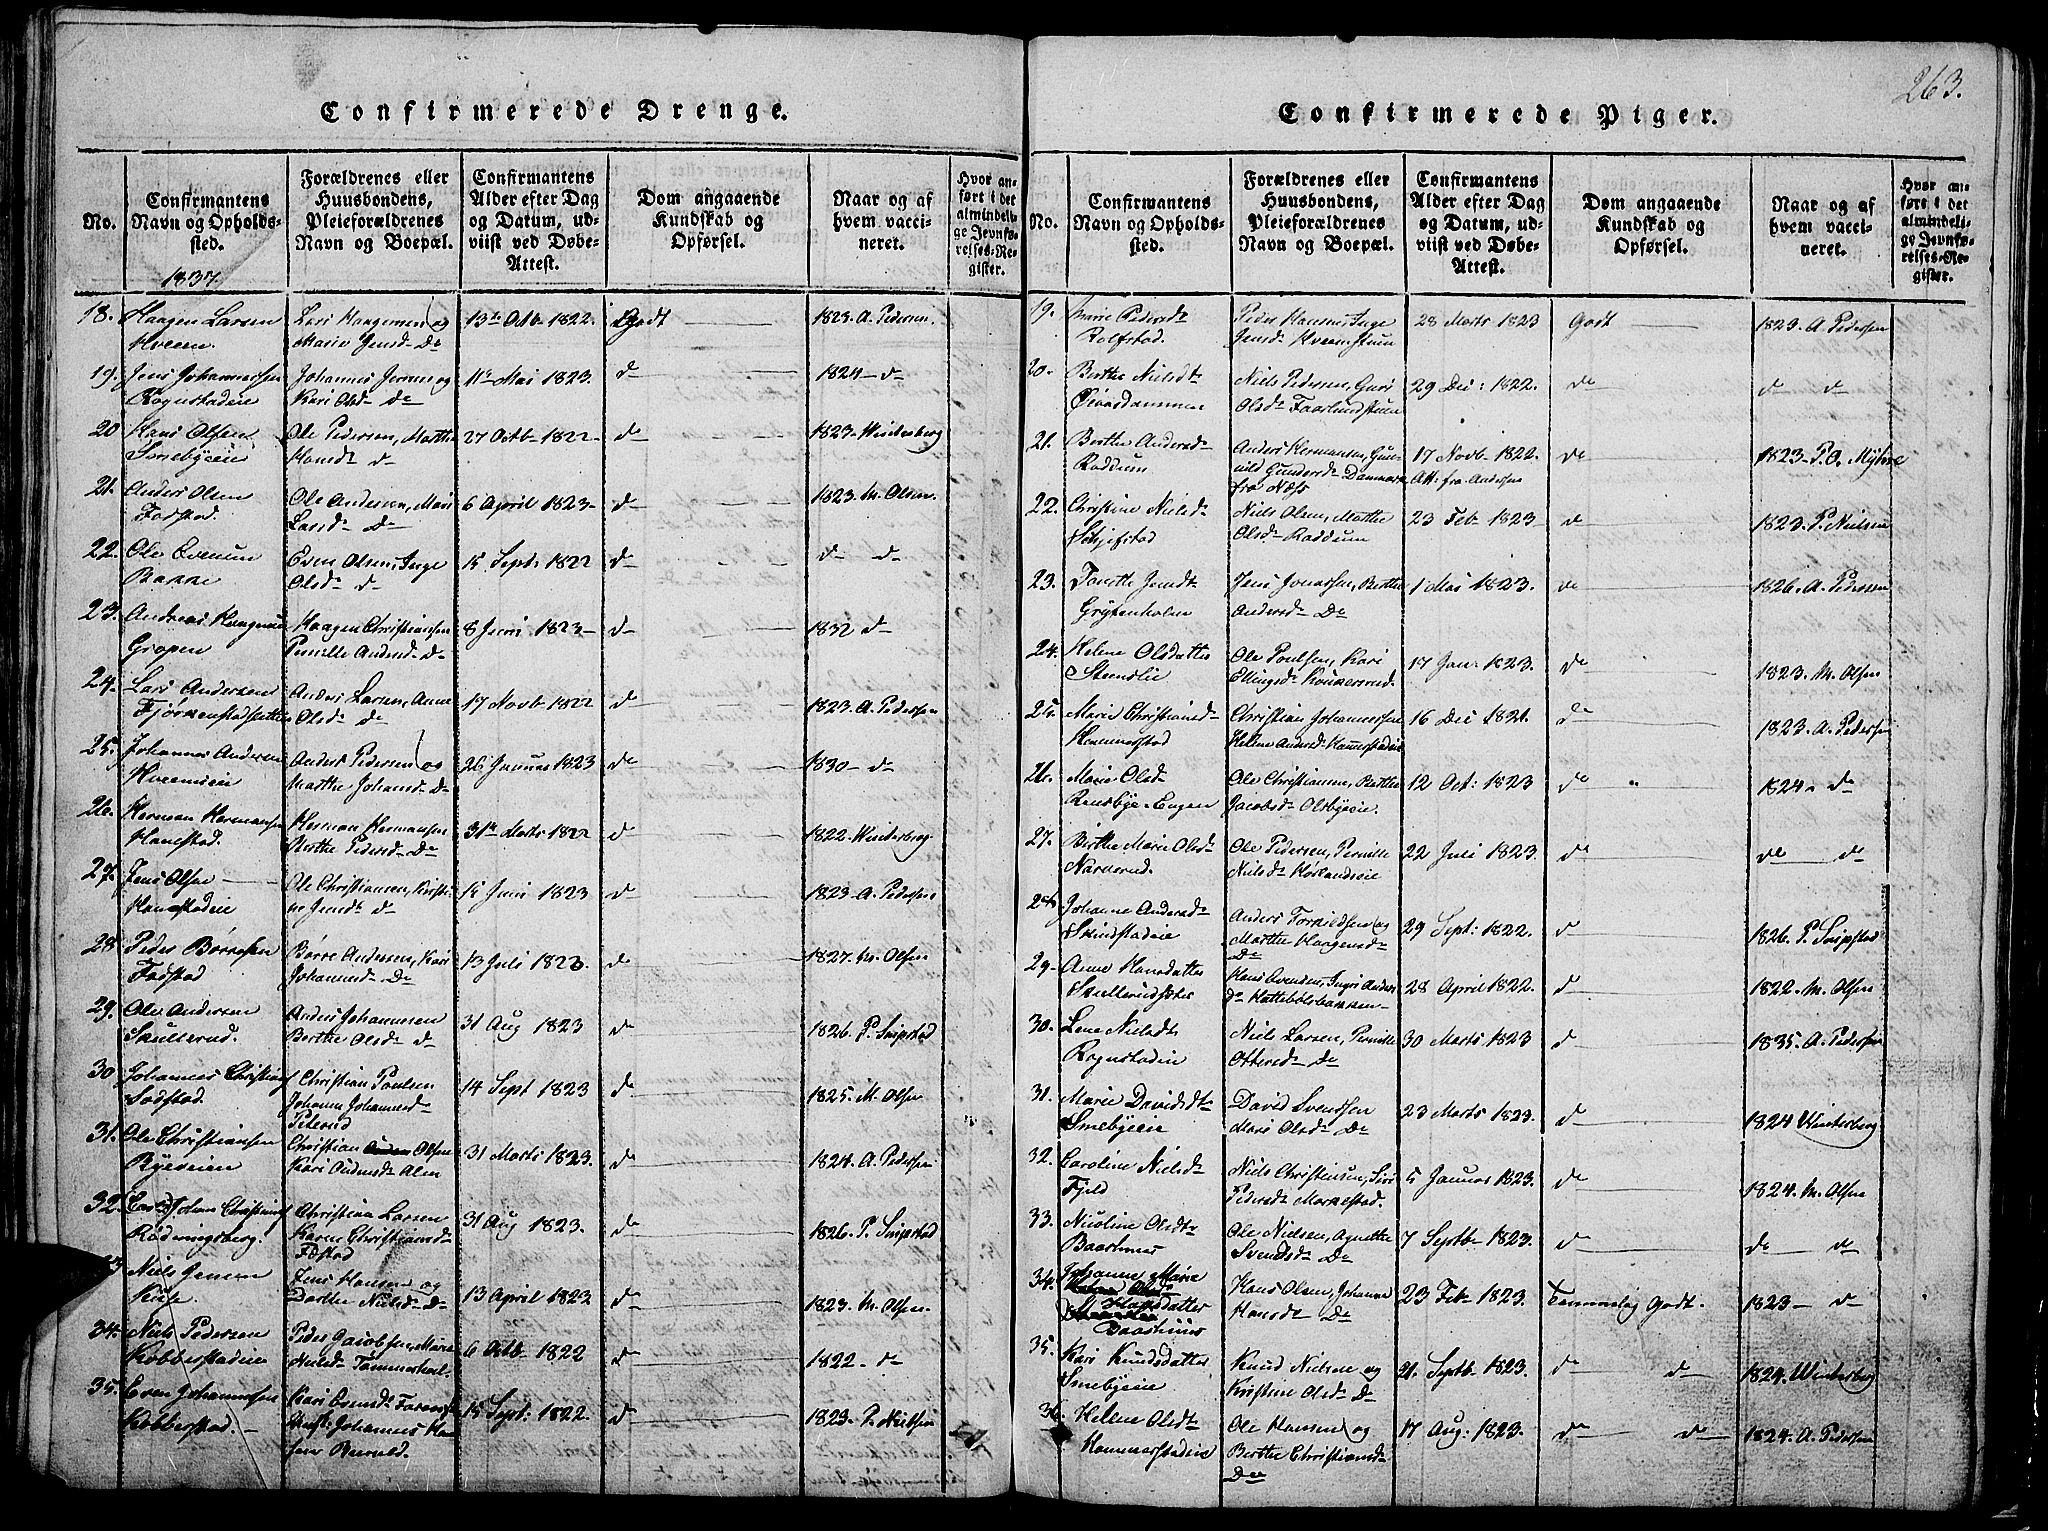 263.
Confirmerede Drenge.
No.
Confirmantens
Navn og Opholds-
sted.
1837
Forældrenes eller
Huusbondens,
Pleieforældrenes
Navn og Boepæl.
Confirmantens
Alder efter Dag
og Datum, ud-
viist ved Døbe-
Attest.
Dom angaaende
Kundskab og
Opførsel.
Naar og af
hvem vacci-
neret.
Hvor an-
ført i det
almindeli-
ge Jevnfø-
relses-Re-
gister.
18. Haagen Larsen
Hveem
Lars Haagensen og
Marie Jensd. De
13de Octb 1822. Godt 1823. A. Pedersen.
19. Jens Johannessen
Rognstadeie
Johannes Jensen og
Kari Olsd. De
11te Mai 1823. d 1824 - d
20 Hans Olsen
Smebyeie
Ole Pedersen, Marthe
Hansd. d
27 Octb 1822 d 1823. Winterberg
21. Anders Olsen
Fodstad.
Ole Andersen, Mari
Larsd. De
6 April 1823 d 1823. M. Olsen.
22. Ole Evensen
Bakke
Even Olsen, Inge
Olsd. d
15 Sept: 1822 d d d
23. Andreas Haagensen
Gropen
Haagen Christiansen
Pernille Andersd. De
8 Juni 1823 d 1832 d
24. Lars Andersen
Anders Larsen, Anne
Olsd. d
17 Novb 1822 d 1823. A. Pedersen
25. Johannes Andersen
Hveemseie
Anders Pedersen og
Marthe Johansd. De
26 Januar 1823 de 1830 - d
26. Herman Hermansen
Hanestad.
Herman Hermansen
Berthe Pedersd. De
31te Marts 1822 d 1822. Winterberg
27. Jens Olsen
Hanestadeie
Ole Christiansen, Kirsti-
ne Jensdt. d
15 Juni 1823 d 1823. A. Pedersen
28. Peder Børresen
Fodstad
Børre Andersen, Kari
Johannesd. De
13 Juli 1823. d 1827. M. Olsen
29. Ole Andersen
Skullerud.
Anders Johannesen
Berthe Olsd. d
31 Aug 1823 d 1826. P. Snipstad
30 Johannes Christians
Sodstad.
Christian Poulsen
Johanne Johannesd.
Peterud
14 Sept 1823 d 1825. M. Olsen
31. Ole Christiansen
Byeveien
Christian Olsen
Kari Andersd. Alm
31 Marts 1823. d 1824. A. Pedersen
32. Carl Johan Christians
Rødningsberg.
Christian Larsen
Karen Christiansd.
Fodstad
31 Aug 1823. d 1826. P. Snipstad
33 Niels Jensen
Kise
Jens Hansen og
Dorthe Nielsd. De
13 April 1823 d 1823. M. Olsen.
34. Niels Pedersen
Kobberstadeie
Peder Jacobsen, Marie
Nielsd. Tømmerhoel.
6 Octb 1822 d 1822 - d
35. Even Johannessen
Kobberstad.
Kari Evensd.
Johannes Han
sen
15 Sept: 1822. d 1823. P. Nielsen
Confirmerede Piger.
No.
Confirmantens
Navn og Opholds-
sted.
Forældrenes eller
Huusbondens,
Pleieforældrenes
Navn og Boepæl.
Confirmantens
Alder efter Dag
og Datum, ud-
viist ved Døbe-
Attest.
Dom angaaende
Kundskab og
Opførsel.
Naar og af
hvem vacci-
neret.
Hvor an-
ført i det
almindeli-
ge Jevnfø-
relses-Re-
gister.
19. Marie Pedersdt
Rolfstad.
Peder Hansen, Inge
Jensd. Hveemstuen
28 Marts 1823 Godt 1823. A. Pedersen
20. Berthe Nielsdt
Niels Pedersen, Guri
Olsd. Faarlundstuen
29 Dec: 1822. de d d
21. Berthe Andersd.
Raddum
Anders Hermansen, Gun-
nild Gundersd. Danmark
fra Næss
17 Novb 1822.
Att: fra Andersen
de 1823 - P. O. Myhre
22. Christine Nielsd.
Schjefstad
Niels Olsen, Marthe
Olsd. Raddum
23 Feb 1823 d 1823. P. Nielsen
23. Torethe Jensdt
Gryteholen
Jens Jonassen, Berthe
Andersd. De
1 Mai 1823. de 1826. A. Pedersen
24. Helene Olsdatter
Steenslie
Ole Poulsen, Kari
Ellingsd. Konkerud.
17 Jan: 1823. de 1823. M. Olsen
25. Marie Christiansd.
Hammerstad
Christian Johannessen
Helene Andersd. Hammerstadeie
16 Dec 1821. de 1823. A. Pedersen
26. Marie Olsd.
Rensbye-Engen
Ole Christiansen, Berthe
Jacobsd. Olsbyeie.
12 Oct: 1823 de 1824. d
27. Berthe Marie Olsd.
Narverud.
Ole Pedersen, Pernille
Nielsd.
22 Juli 1823. d de d
28 Johanne Andersd.
Skindstadeie
Anders Torkildsen og
Marthe Haagensd.
De
29 Sept: 1822. d 1826. P. Snipstad
29. Anne Hansdatter
Hans Svendsen, Ingri Anders
d.
28 April 1822. d 1822. M. Olsen
30. Lene Nielsdt
Rognstadeie
Niels Larsen, Pernille
Ottersd. De
30 Marts 1823 d 1835. A. Pedersen
31. Marie Davidsdt
Smebyeie
David Svendsen
Mari Olsd. De
23 Marts 1823. d 1824 Winterberg
32. Caroline Nielsd.
Fjeld
Niels Christensen, Siri
Pedersd. Morkestad.
5 Januar 1823. de 1824. M. Olsen
33. Nicoline Olsdt
Baashuus
Ole Nielsen, Agnethe
Svendsd. De
7 Septb 1823. d de d
34. Johanne Marie
Hansdatter
Baashuus
Hans Olsen, Johanne
Hansdt De
23 Feb 1823. Temmelig Godt. 1823 - d
35. Kari Knudsdatter
Smebyeie
Knud Nielsen og
Kristine Olsd. De
21. Septb 1823. d d 1824. Winterberg
36. Helene Olsdt
Hammerstadeie
Ole Hansen og
Berthe Christiansd.
De
17 Aug: 1823. d d 1824. A. Pedersen